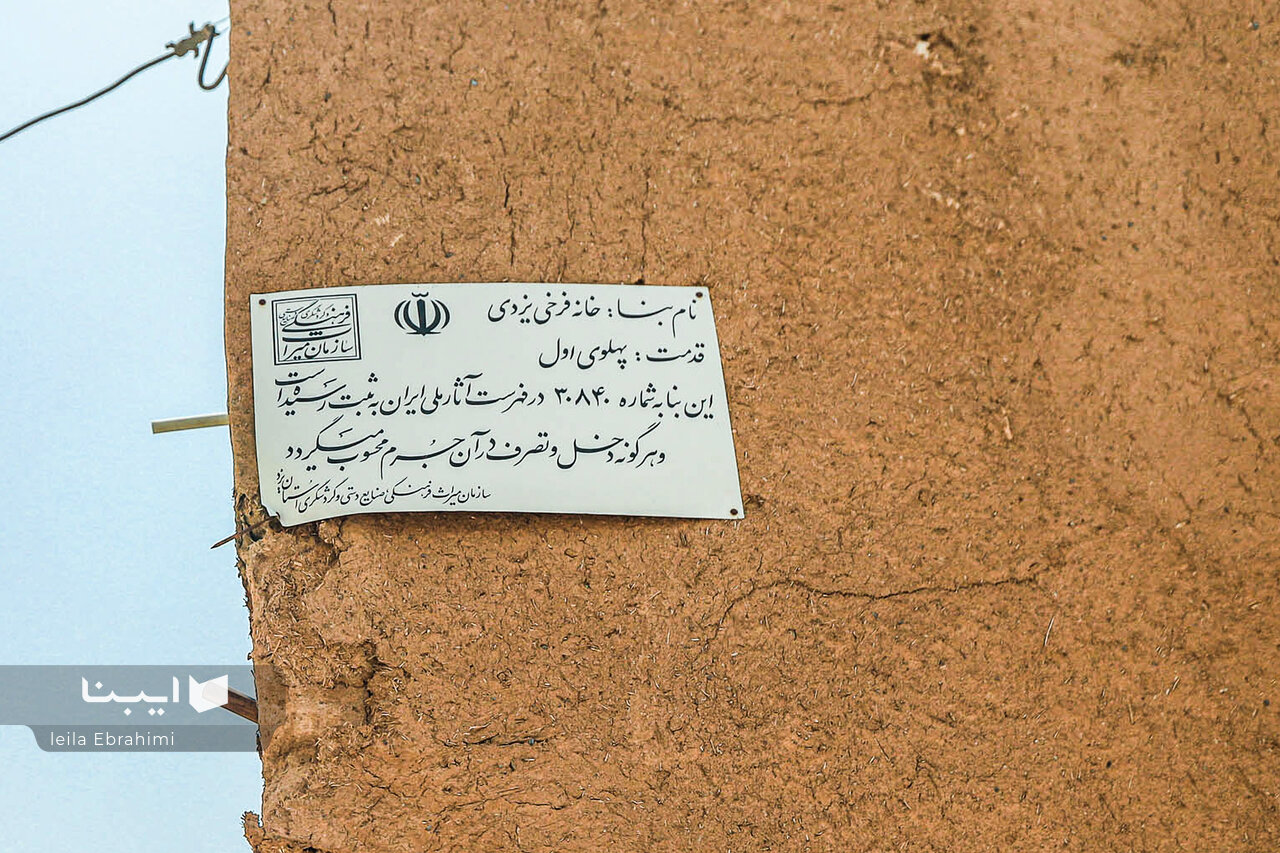 نام بنا : خانه فرخی یزدی
قدمت : پهلوی اول
این بنا به شماره ۳۰۸۴۰ در فهرست آثار ملی ایران به ثبت رسیده است
و هر گونه دخل و تصرف در آن جرم محسوب میگردد
سازمان میراث فرهنگی، صنایع دستی و گردشگری استان یزد
سازمان میراث فرهنگی صنایع دستی و گردشگری
ایبنا
leila Ebrahimi